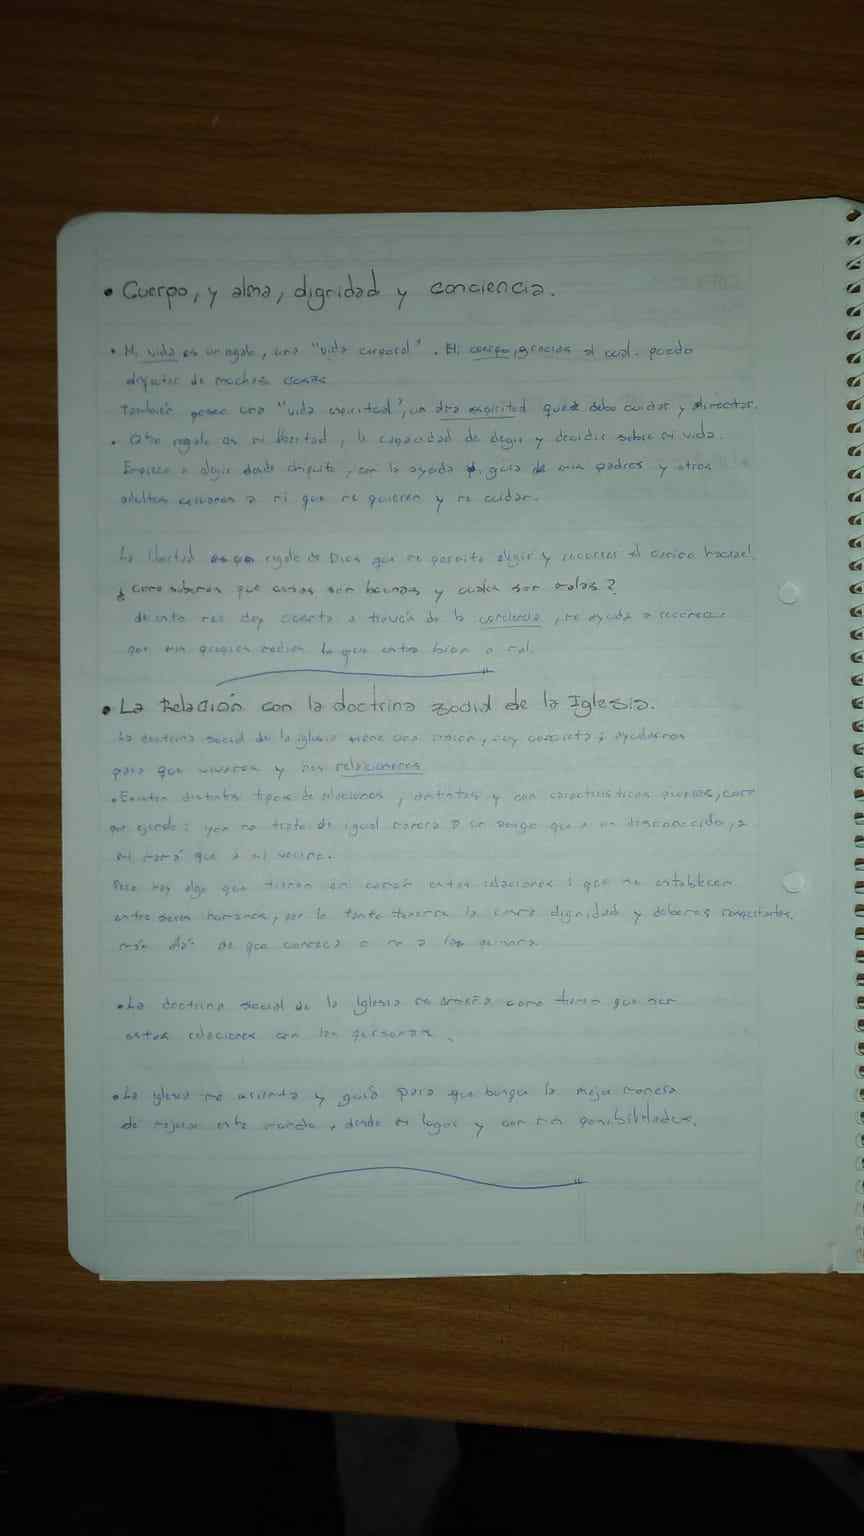 • Cuerpo, y alma, dignidad y conciencia.
• Mi vida es un regalo, una "vida corporal". El cuerpo, gracias al cual puedo
disfrutar de muchas cosas
también poseo una "vida espiritual", un alma espiritual que debo cuidar y
• Otro regalo es mi libertad, la capacidad de elegir y decidir sobre mi vida.
Empiezo a elegir desde chiquito, con la ayuda y guía de mis padres y otros
adultos cercanos a mi que me quieren y me cuidan.
La libertad es un regalo de Dios que me permite elegir y recorrer el camino hacia el.
¿Como sabemos que cosas son buenas y cuales son malas?
de esto nos doy cuenta a través de la conciencia, me ayuda a reconocer
por mis propios medios lo que esta bien o mal.
• La Relación con la doctrina social de la Iglesia.
La doctrina social de la iglesia tiene una misión, muy concreta; ayudarnos
para que vivamos y nos relacionemos
• Existen distintos tipos de relaciones, distintas y con características propias, como
por ejemplo: yo no trato de igual manera a un amigo que a un desconocido, a
mi mamá que a mi vecino.
Pero hay algo que tienen en común estas relaciones: que se establecen
entre seres humanos, por lo tanto tenemos la misma dignidad y deberes respetarlos.
más allá de que conozca o no a las personas
• La doctrina social de la Iglesia me enseña como tienen que ser
estas relaciones con las personas.
• La iglesia me orienta y guía para que busque la mejor manera
de mejorar este mundo, desde mi lugar y con mis posibilidades.